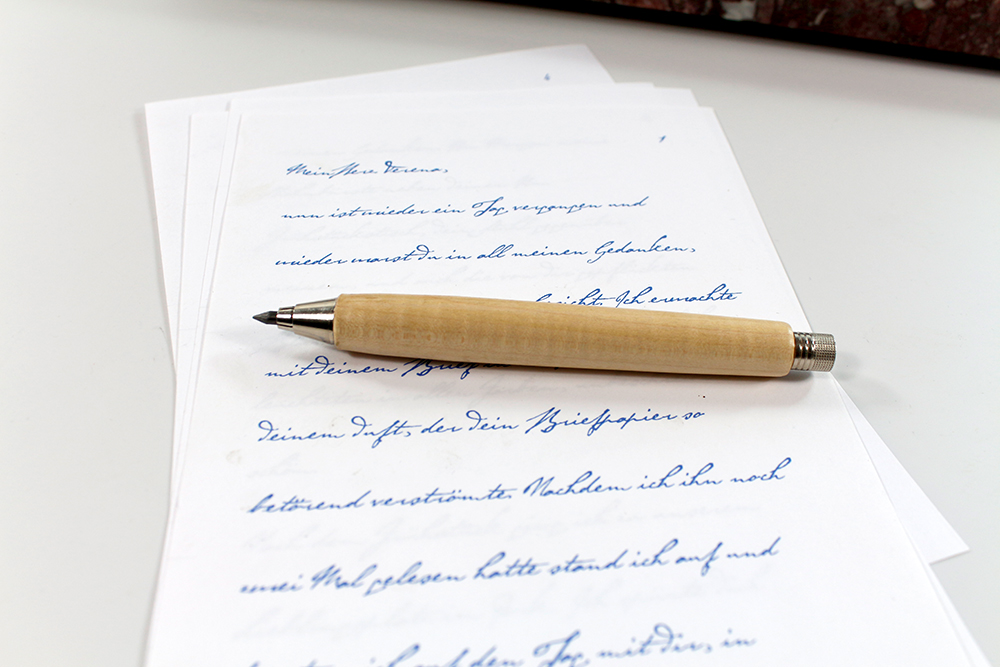 4
1
Meine Verena,
nun ist wieder ein Tag vergangen und
wieder warst du in all meinen Gedanken,
Ich erwachte
mit deinem Brief
deinem Duft, der dein Briefpapier so
betörend verströmte. Nachdem ich ihn noch
zwei Mal gelesen hatte stand ich auf und
ich auf den Tag mit dir, in